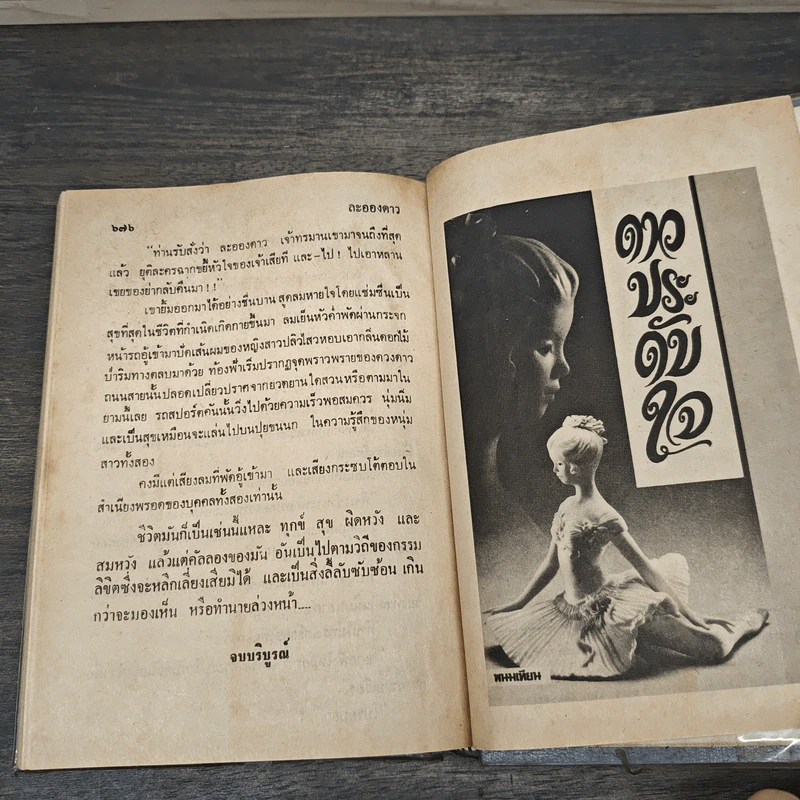 ละอองดาว
๖๗๖
"ท่านรับสั่งว่า ละอองดาว เจ้าทรมานเขามาจนถึงที่สุด
แล้ว ยุติละครฉากขยี้หัวใจของเจ้าเสียที และ-ไป! ไปเอาหลาน
เขยของย่ากลับคืนมา!!"
เขายิ้มออกมาได้อย่างชื่นบาน สุดลมหายใจโดยแช่มชื่นเป็น
สุขที่สุดในชีวิตที่กำเนิดเกิดกายขึ้นมา ลมเย็นหัวค่ำพัดผ่านกระจก
หน้ารถอู้เข้ามาปัดเส้นผมของหญิงสาวปลิวไสวหอบเอากลิ่นดอกไม้
ป่าริมทางตลบมาด้วย ท้องฟ้าเริ่มปรากฏจุดพราวพรายของดวงดาว
ถนนสายนั้นปลอดเปลี่ยวปราศจากยวดยานใดสวนหรือตามมาใน
ยามนี้เลย รถสปอร์ตคันนั้นวิ่งไปด้วยความเร็วพอสมควร นุ่มนิ่ม
และเป็นสุขเหมือนจะแล่นไปบนปุยขนนก ในความรู้สึกของหนุ่ม
สาวทั้งสอง
คงมีแต่เสียงลมที่พัดอู้เข้ามา และเสียงกระซบโต้ตอบใน
สำเนียงพรอดของบุคคลทั้งสองเท่านั้น
ชีวิตมันก็เป็นเช่นนี้แหละ ทุกข์ สุข ผิดหวัง และ
สมหวัง แล้วแต่คัลลองของมัน อันเป็นไปตามวิถีของกรรม
ลิขิตซึ่งจะหลีกเลี่ยงเสียมิได้ และเป็นสิ่งลี้ลับซับซ้อน เกิน
กว่าจะมองเห็น หรือทำนายล่วงหน้า....
จบบริบูรณ์
ดาว
ประ
ดับ
ใจ
พนมเทียน